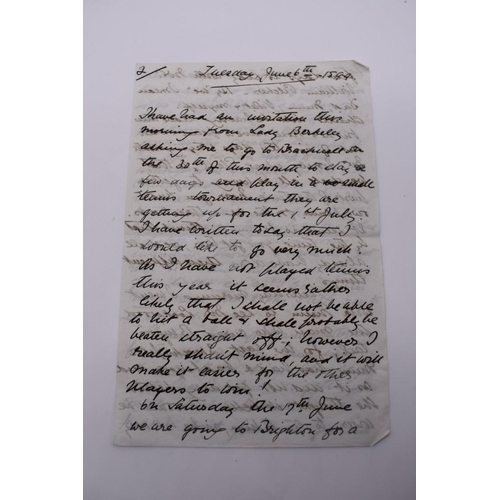 2/ Tuesday, June 6th 1899
I have had an invitation this
morning from Lady Berkeley
asking me to go to Bracknell on
the 30th of this month to stay a
few days and play in a small
tennis tournament they are
getting up for the 1st July.
I have written to say that I
would like to go very much!
As I have not played tennis
this year it seems rather
likely that I shall not be able
to hit a ball & shall probably be
beaten straight off; however I
really shan't mind, and it will
make it easier for the other
players to win!
On Saturday the 17th June
we are going to Brighton for a